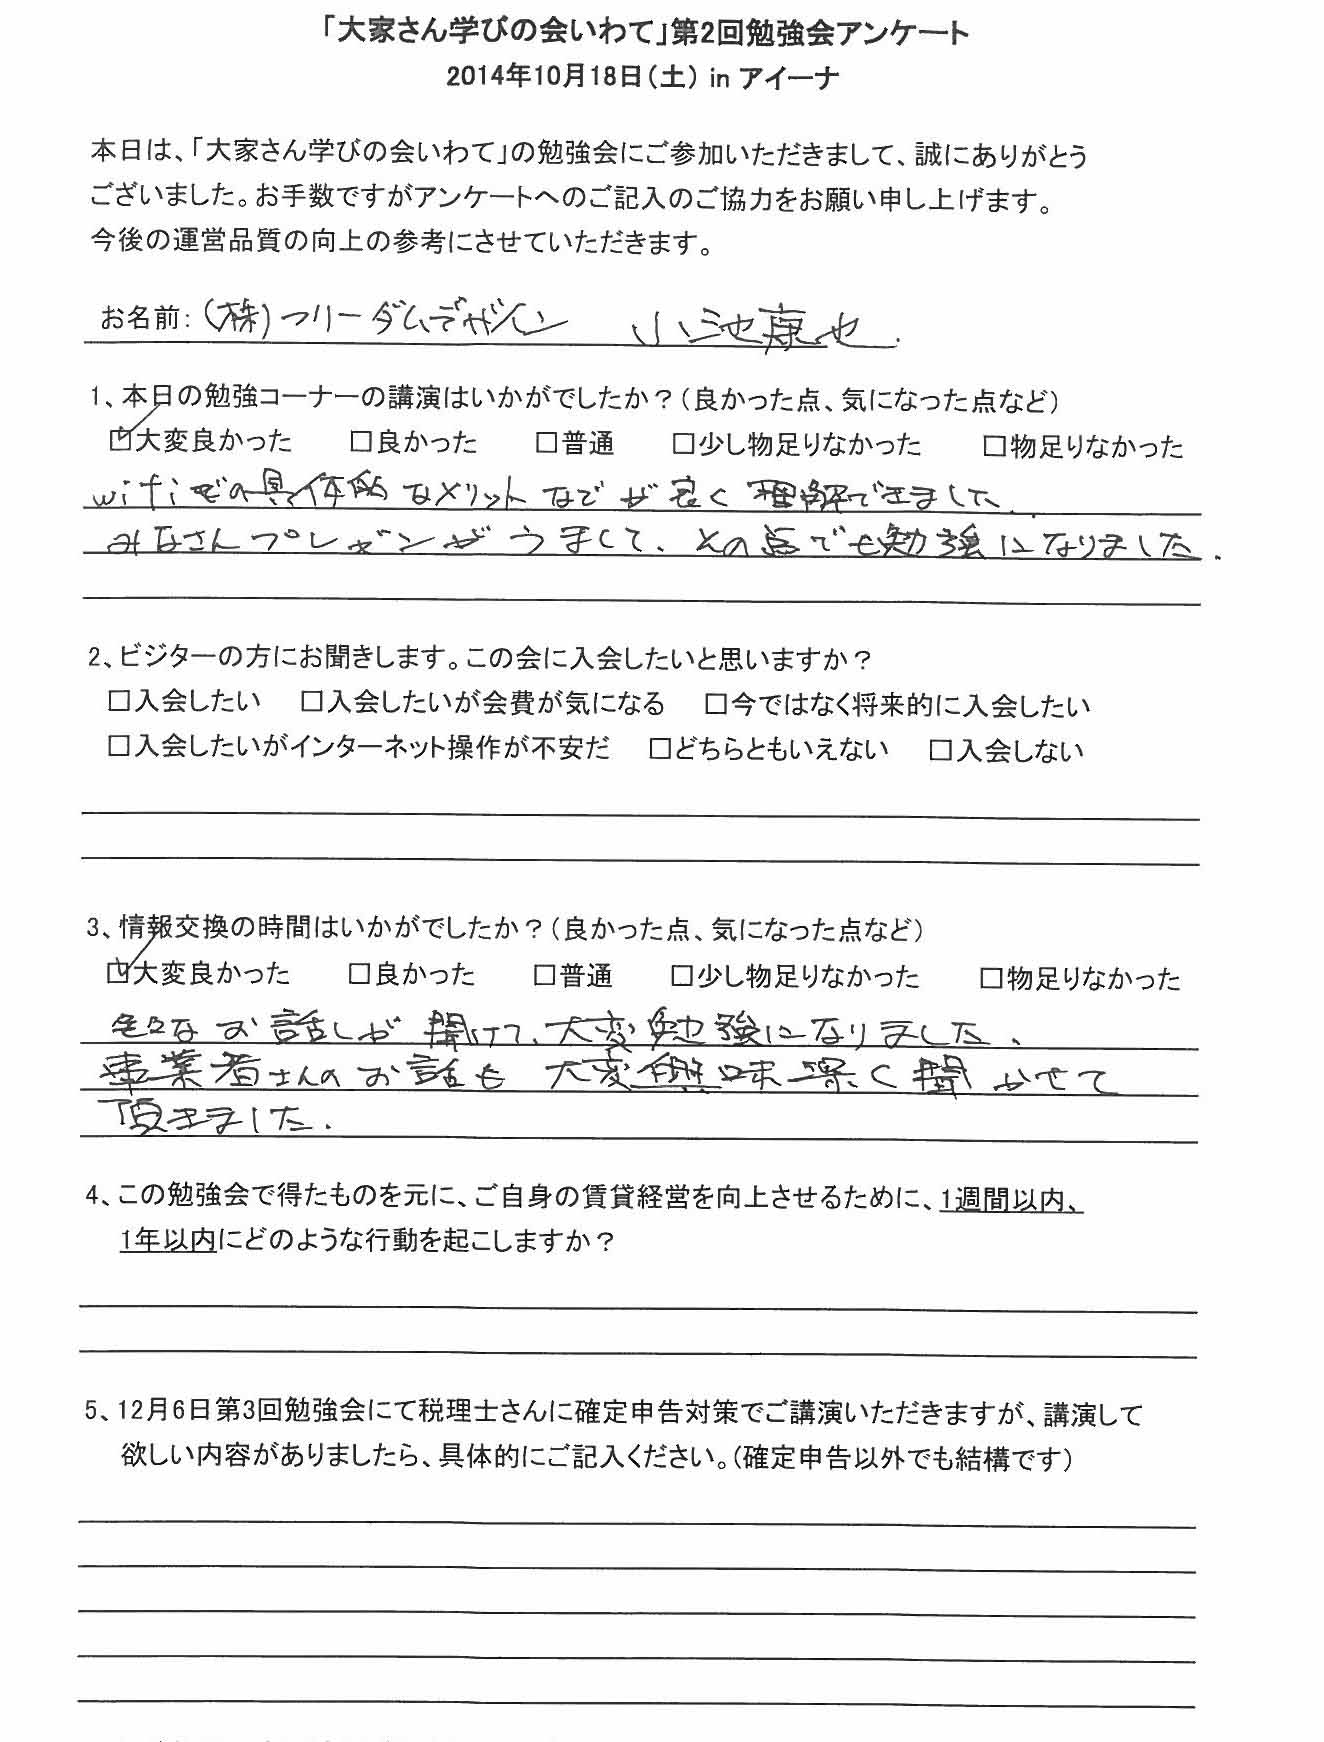 「大家さん学びの会いわて」第2回勉強会アンケート
2014年10月18日(土) in アイーナ
本日は、「大家さん学びの会いわて」の勉強会にご参加いただきまして、誠にありがとう
ございました。お手数ですがアンケートへのご記入のご協力をお願い申し上げます。
今後の運営品質の向上の参考にさせていただきます。
お名前: (株)フリーダムデザイン 小池康也.
1、本日の勉強コーナーの講演はいかがでしたか?(良かった点、気になった点など)
☑大変良かった □良かった □普通 □少し物足りなかった □物足りなかった
wifiでの具体的なメリットなどが良く理解できました.
みなさんプレゼンがうまくて、その点でも勉強になりました.
2、ビジターの方にお聞きします。この会に入会したいと思いますか?
□入会したい □入会したいが会費が気になる □今ではなく将来的に入会したい
□入会したいがインターネット操作が不安だ □どちらともいえない □入会しない
3、情報交換の時間はいかがでしたか?(良かった点、気になった点など)
☑大変良かった □良かった □普通 □少し物足りなかった □物足りなかった
色々なお話しが聞けて、大変勉強になりました、
事業者さんのお話も大変興味深く聞かせて
頂きました.
4、この勉強会で得たものを元に、ご自身の賃貸経営を向上させるために、1週間以内、
1年以内にどのような行動を起こしますか?
5、12月6日第3回勉強会にて税理士さんに確定申告対策でご講演いただきますが、講演して
欲しい内容がありましたら、具体的にご記入ください。(確定申告以外でも結構です)